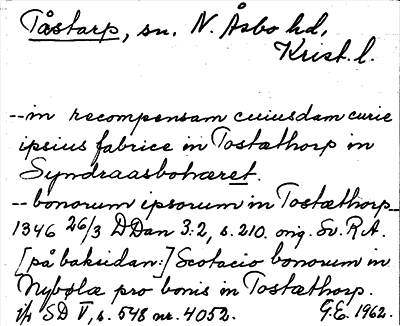 Tåstarp, sn. N. Åsbo hd,
Krist. l.
--in recompensam cuiusdam curie
ipsius fabrice in Tostæthorp in
Syndraasbohæret.
--bonorum ipsorum in Tostæthorp--
1346 26/3 DDan 3:2, s. 210. orig. Sv. R.A.
[på baksidan:] Scotacio bonorum in
Nybølæ pro bonis in Tostæthorp.
i/r SD V, s. 548 nr. 4052. G.E. 1962.